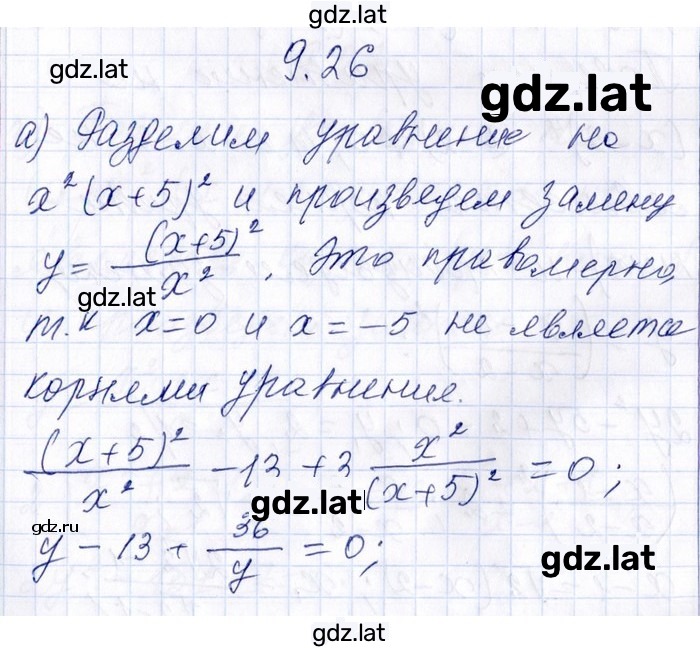 gdz.lat
9.26
gdz.lat
gdz.lat
а) Разделим уравнение на
x²(x+5)² и произведем замену
y = (x+5)²/x². Это правомерно,
gdz.lat
т.к x=0 и x=-5 не является
корнями уравнения.
(x+5)²/x² - 13 + 3 x²/(x+5)² = 0;
gdz.lat
gdz.ru
y - 13 + 36/y = 0;
gdz.lat
gdz.lat